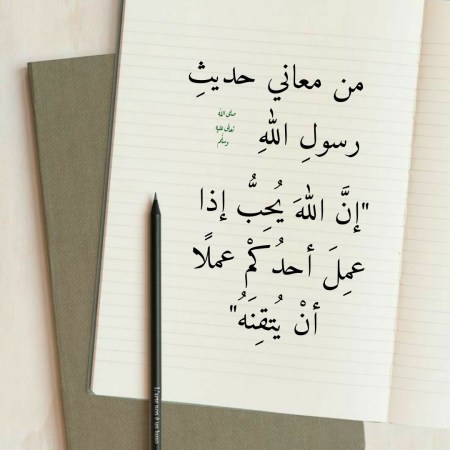 من معاني حديثِ
رسولِ اللهِ
صلى الله
تعالى عليه
وسلم
"إنَّ اللهَ يُحِبُّ إذا
عمِلَ أحدُكمْ عملًا
أنْ يُتقِنَهُ"